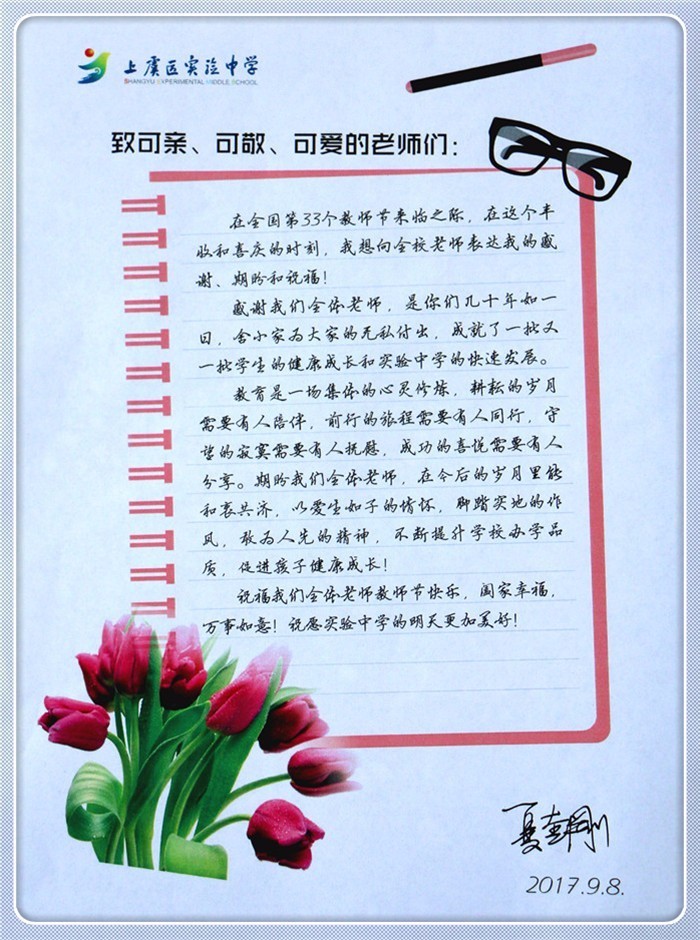 上虞区实验中学
SHANGYU EXPERIMENTAL MIDDLE SCHOOL
致可亲、可敬、可爱的老师们：
在全国第33个教师节来临之际，在这个丰
收和喜庆的时刻，我想向全校老师表达我的感
谢、期盼和祝福！
感谢我们全体老师，是你们几十年如一
日，舍小家为大家的无私付出，成就了一批又
一批学生的健康成长和实验中学的快速发展。
教育是一场集体的心灵修炼，耕耘的岁月
需要有人陪伴，前行的旅程需要有人同行，守
望的寂寞需要有人抚慰，成功的喜悦需要有人
分享。期盼我们全体老师，在今后的岁月里能
和衷共济，以爱生如子的情怀，脚踏实地的作
风，敢为人先的精神，不断提升学校办学品
质，促进孩子健康成长！
祝福我们全体老师教师节快乐，阖家幸福，
万事如意！祝愿实验中学的明天更加美好！
2017.9.8.